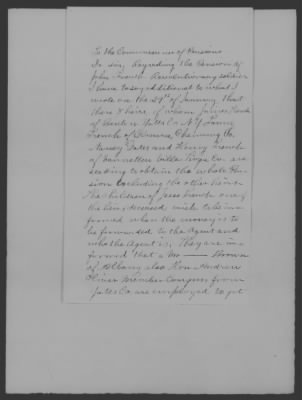 To the Commissioner of Pensions
Dr sir, Regarding the Pension of
John French Revolutionary soldier
I have to say additional to what I
wrote on the 29th of January, that
there 4 heirs, of whom James French
of Yates Co N.Y. Fanny
French of Chemung Co.
Nancy Yates and Henry French
of Co. are
seeking to obtain the whole Pen
sion excluding the other heirs
The children of Jesse French one of
the heirs deceased wish to be in
formed when the money is to
be forwarded to the Agent and
who the Agent is; They are in
formed that a Mr —— Brown
of Albany also Hon. Andrew
Oliver Member Congress from
Yates Co are employed to get